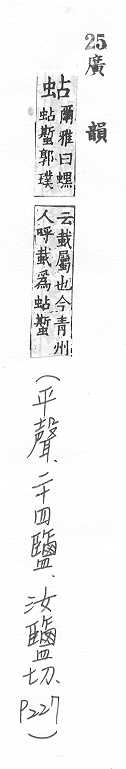 25
廣韻
蛅
爾雅曰蟔
蛅蟴郭璞
云蛓屬也今青州
人呼蛓爲蛅蟴
(平聲、二十四鹽、汝鹽切、P227)